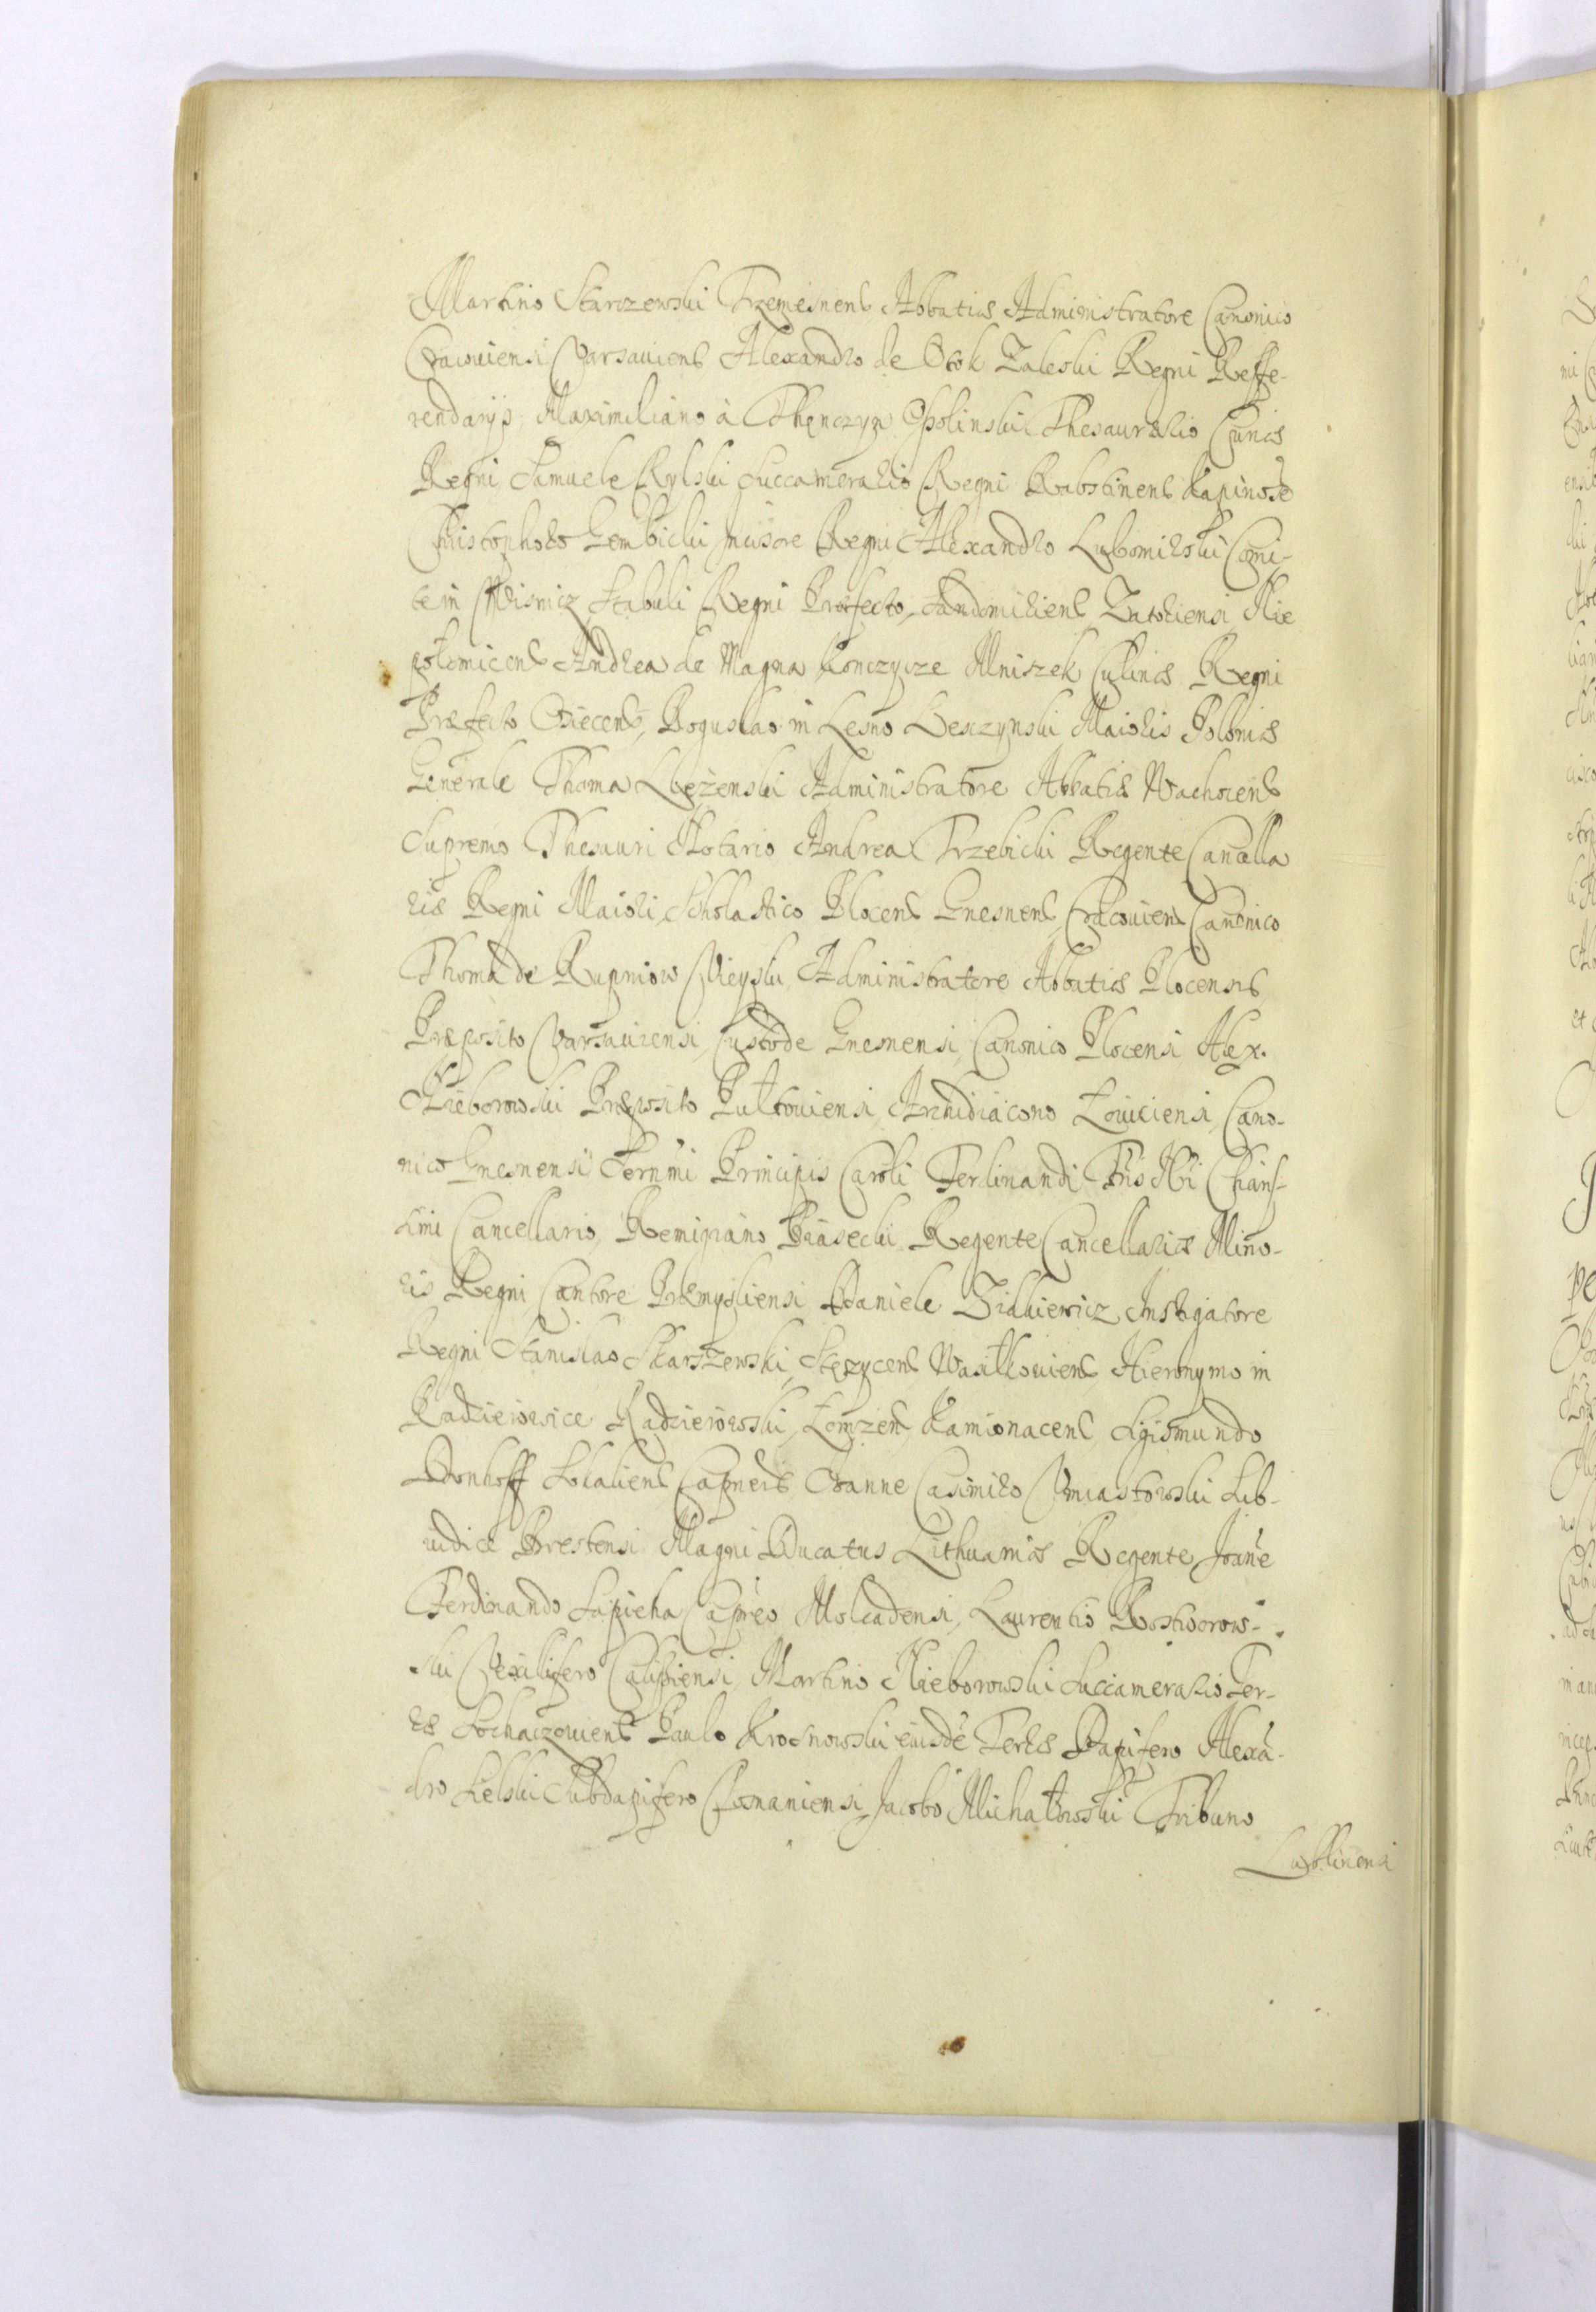 Martino Starczewski Trzemesnens Abbatiæ Administratore Canonico
Cracoviensi Varsaviens Alexandro de Otok Zaleski Regni Reffe-
rendarijs, Maximiliano à Thenczyn Ossolinski Thesaurario Curiæ
Regni Samuele Rylski Succamerario Regni Rabstinens
Christophoro Gembicki Inciso͞re Regni Alexandro Lubomirski Comi-
te in Wisnicz Stabuli Regni Præfecto, Sandomiriens Zatoriensi, Nie
połomicens Andrea de Magna Konczycze Mniszek Culinæ Regni
Præfecto Osiecens, Boguslao in Lesno Leszczynski Maioris Poloniæ
Generale Thoma Ubyszenski Administratore Abbatiæ Wachocens
Supremo Thesauri Notario Andrea Trzebicki Regente Cancella
riæ Regni Maiori, Scholastico Plocens Gnesnens, Cracoviens Canonico
Thoma de Rupniow Vieyski, Administratore Abbatiæ Plocensis
Præposito Varsaviensi, Custode Gnesnensi, Canonico Plocensi, Alex.
Nieborowski Præposito Pultoviensi, Archidiacono Łoviciensi, Cano-
nico Gnesnensi Sernmi Principis Caroli Ferdinandi
Cancellario, Remigiano Piasecki Regente Cancellariæ Mino-
ris Regni Cantore Præmysliensi Daniele Zitkiewicz Instigatore
Regni Stanislao Skarszewski, Stęzycens Wasilkoviens, Hieronymo in
Radzieiovice Radzieiowski, Łomzens, Kamionacens, Sigismundo
Donhoff Sokaliens Capneis, Joanne Casimiro Umiastowski Sub-
iudice Brestensi Magni Ducatus Lithuaniæ Regente Joan̄e
Ferdinando Sapieha Capneo Molcadensi, Laurentio Rostworow-
ski Vexilifero Calissiensi, Martino Nieborowski Succamerario Ter-
ræ Sochaczoviens Paulo Krosnowski eiusdē Terræ Dapifero Alexā-
dro Kelski Subdapifero Posnaniensi Jacobo Michałowski Tribuno
Lublinensi